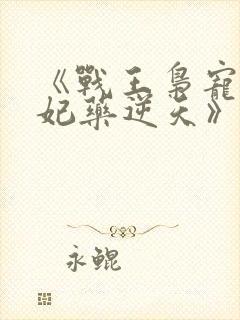 《戰王梟寵
妃藥逆天》
永鯤